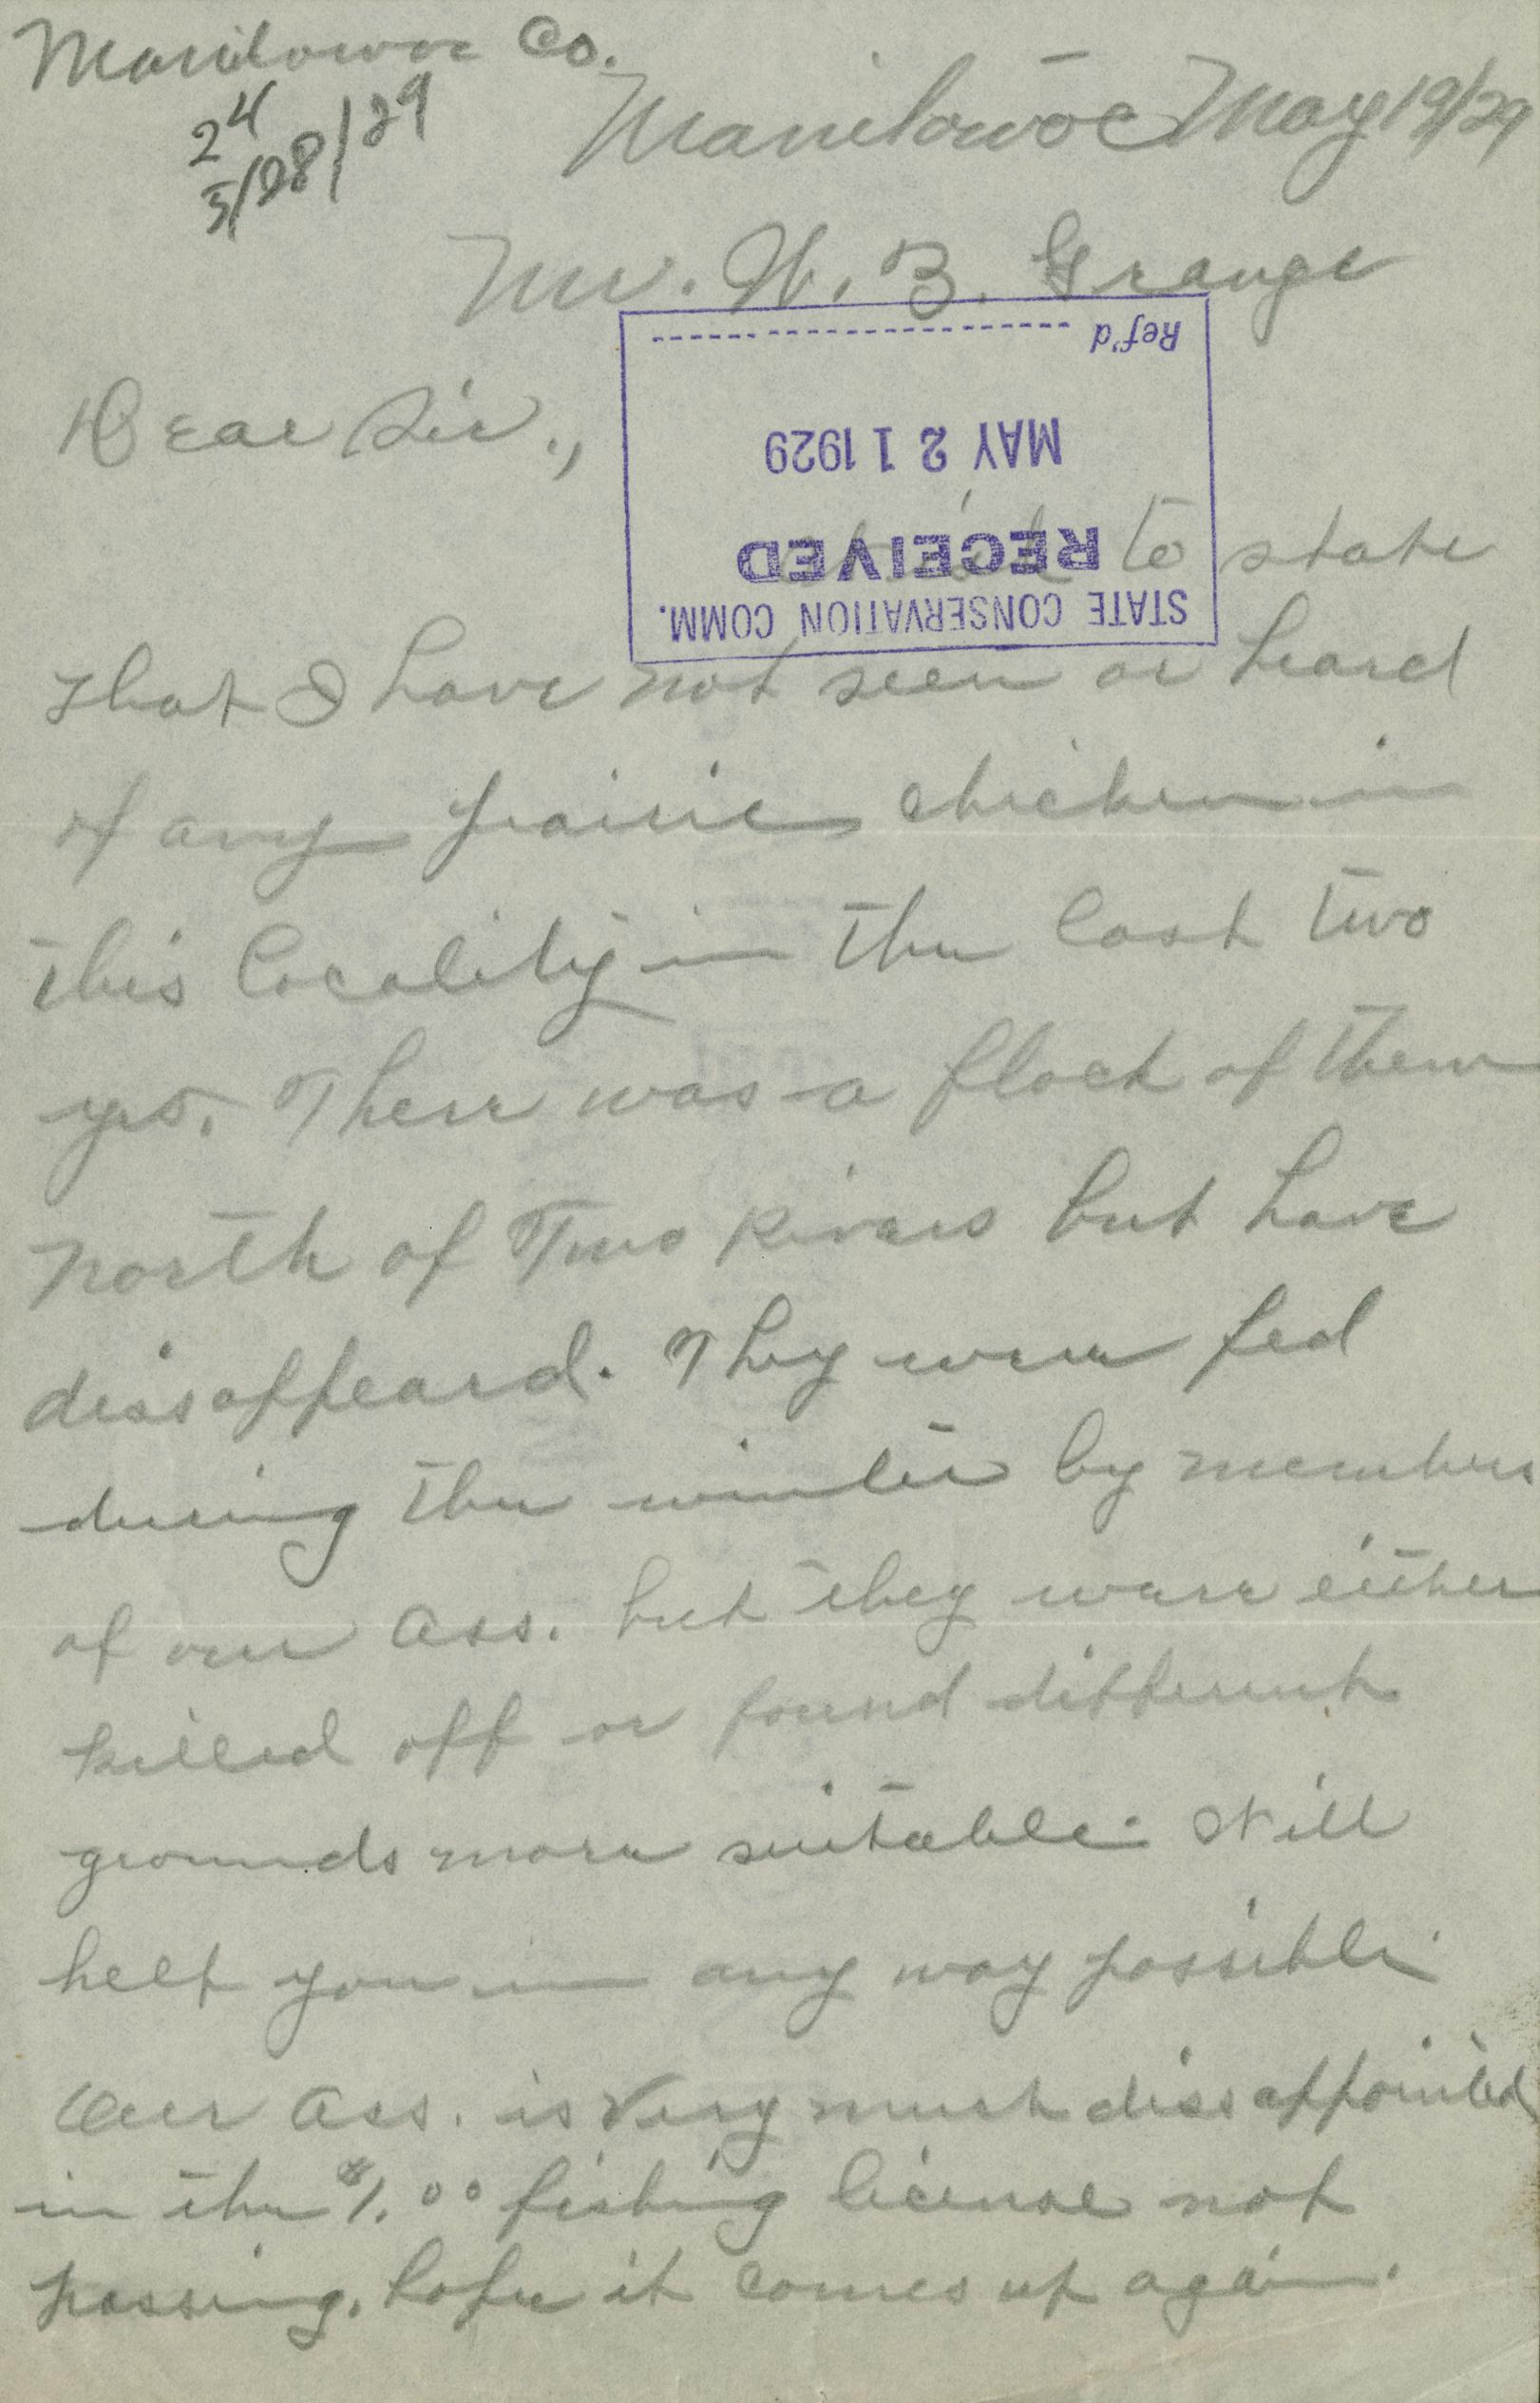 Manitowoc Co.
24
5/28/29
Manitowoc May 19/29
Mr. W. B. Grange
Dear Sir.,
Ref'd
MAY 21 1929
RECEIVED
STATE CONSERVATION COMM.
to state
that I have not seen or heard
of any prairie chicken in
this locality in the last two
yrs. There was a flock of them
north of Two Rivers but have
dissappeard. They were fed
during the winter by members
of our Ass. but they were either
killed off or found different
grounds more suitable. Will
help you in any way possible.
Our Ass. is very much dissappointed
in the $1.00 fishing license not
passing. hope it comes up again.